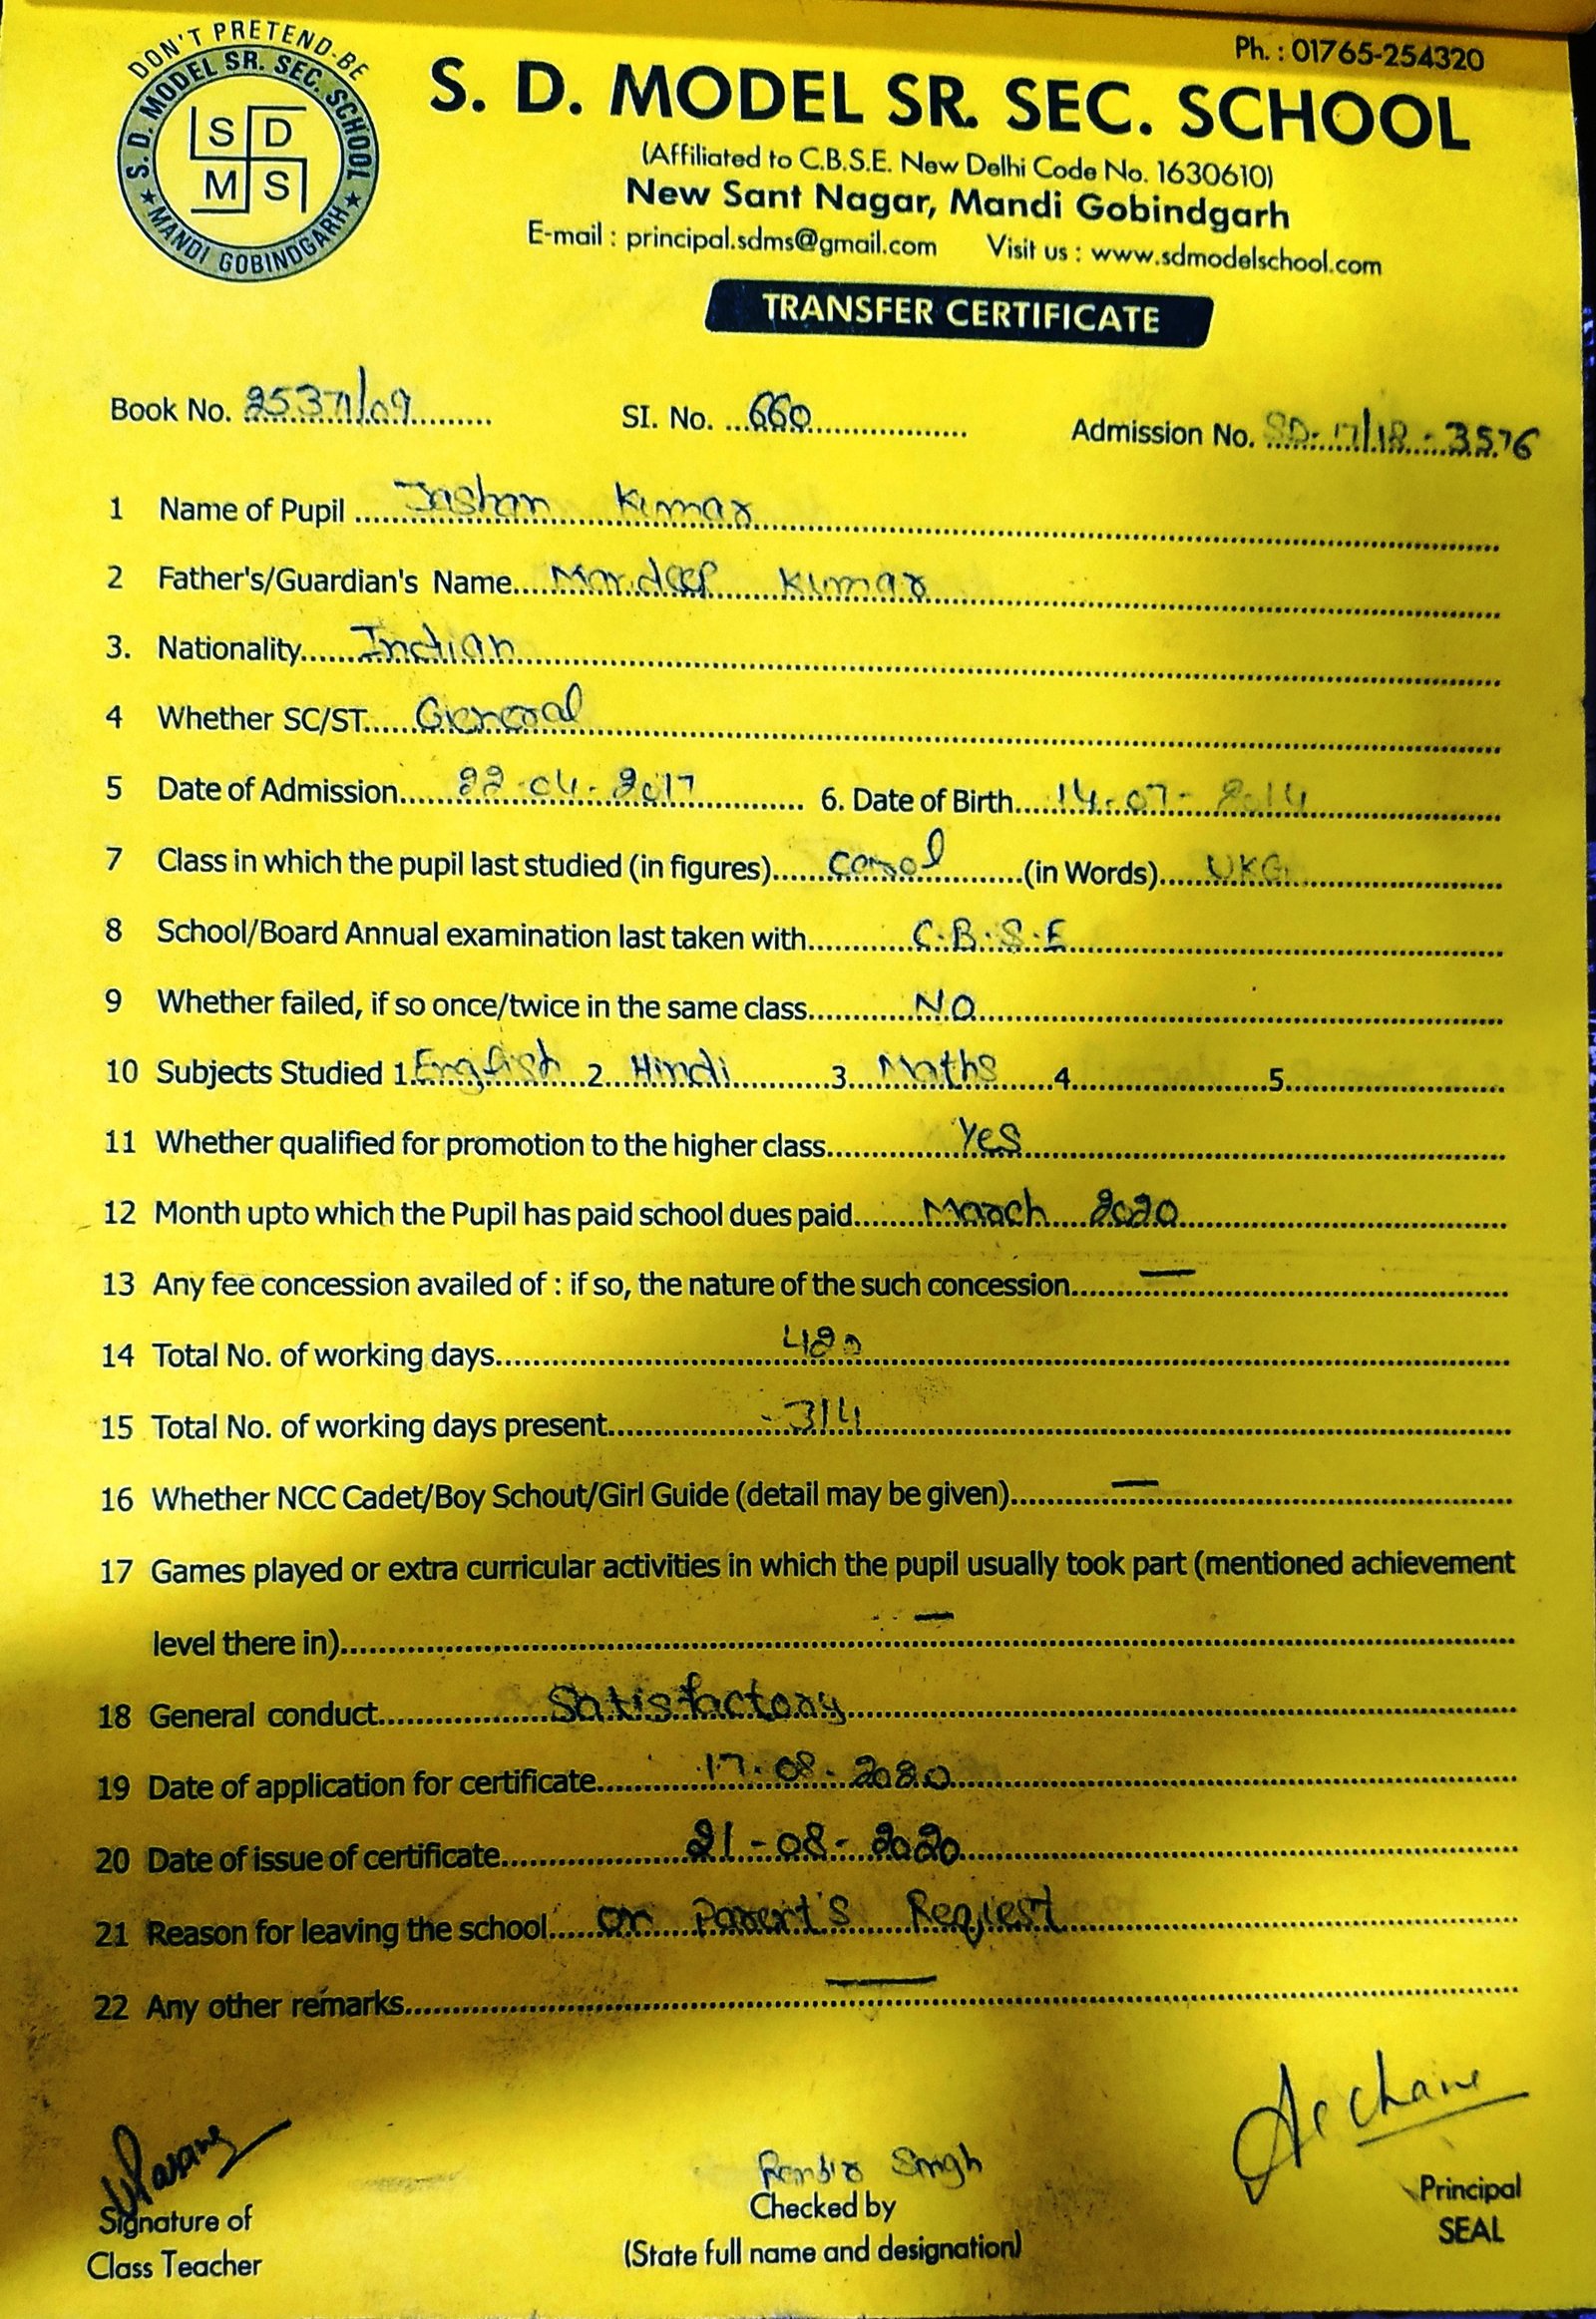 Ph. : 01765-254320
DON'T PRETEND-BE
S. D. MODEL SR. SEC. SCHOOL
MANDI GOBINDGARH
S D
M S
S. D. MODEL SR. SEC. SCHOOL
(Affiliated to C.B.S.E. New Delhi Code No. 1630610)
New Sant Nagar, Mandi Gobindgarh
E-mail : principal.sdms@gmail.com Visit us : www.sdmodelschool.com
TRANSFER CERTIFICATE
Book No. 25371/09 SI. No. 660 Admission No. SD-17/18-3576
1 Name of Pupil Jashan Kumar
2 Father's/Guardian's Name Mandeep Kumar
3. Nationality Indian
4 Whether SC/ST General
5 Date of Admission 22-04-2017 6. Date of Birth 14-07-2014
7 Class in which the pupil last studied (in figures) (in Words) UKG
8 School/Board Annual examination last taken with C.B.S.E
9 Whether failed, if so once/twice in the same class NO
10 Subjects Studied 1. English 2. Hindi 3. Maths 4. 5.
11 Whether qualified for promotion to the higher class Yes
12 Month upto which the Pupil has paid school dues paid March 2020
13 Any fee concession availed of : if so, the nature of the such concession —
14 Total No. of working days 420
15 Total No. of working days present 314
16 Whether NCC Cadet/Boy Schout/Girl Guide (detail may be given) —
17 Games played or extra curricular activities in which the pupil usually took part (mentioned achievement
level there in) —
18 General conduct Satisfactory
19 Date of application for certificate 17-08-2020
20 Date of issue of certificate 21-08-2020
21 Reason for leaving the school on Parent's Request
22 Any other remarks —
Archana
Ranbir Singh
Signature of Checked by Principal
Class Teacher (State full name and designation) SEAL